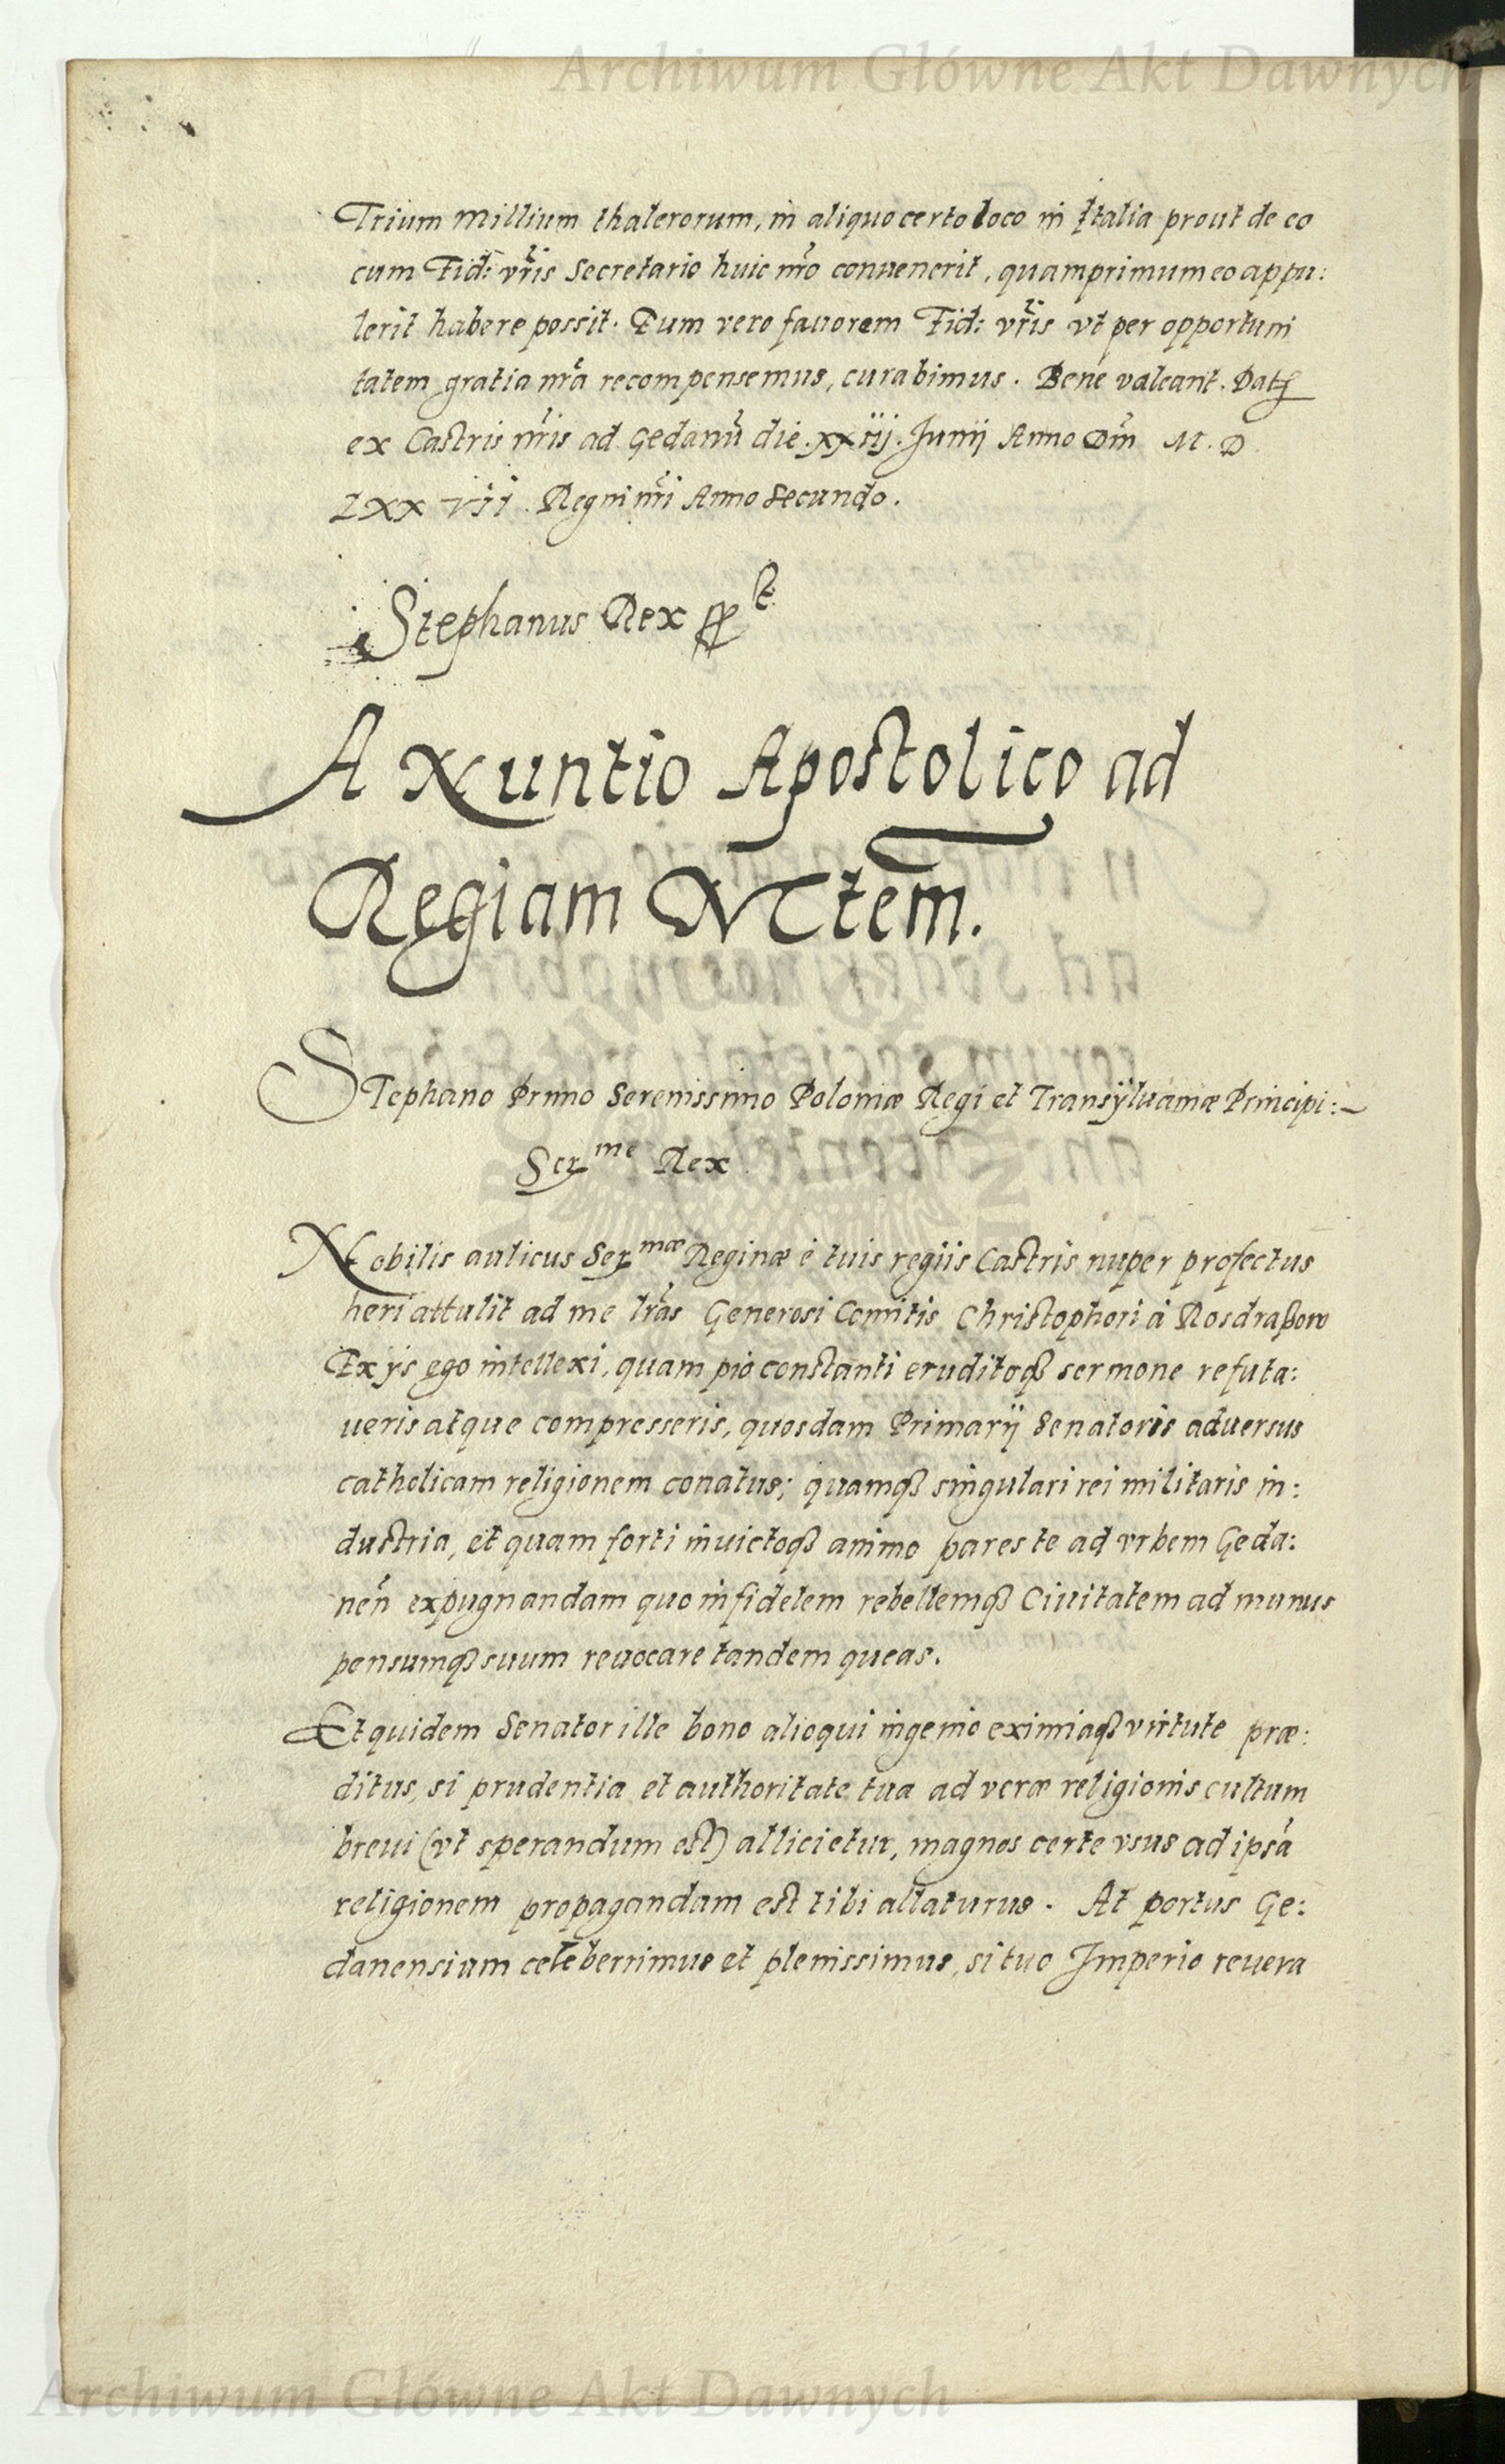 Archiwum Główne Akt Dawnych
Trium Millium thalerorum, in aliquo certo loco in Italia prout de eo
cum Fid: vr̃is Secretario huic nr̃o conuenerit, quamprimum eo appu:
lerit habere possit. Eum vero fauorem Fid: vr̃is vt per opportuni
tatem gratia nr̃a recompensemus, curabimus. Bene valeant. Dat
ex Castris nr̃is ad Gedanũ die. xxiij. Junij Anno Dm̃ M. D.
Lxx vii. Regni nr̃i Anno Secundo.
Stephanus Rex
A Nuntio Apostolico ad
Regiam Mtem.
Stephano Primo Serenissimo Poloniæ Regi et Transyluaniæ Principi:~
Ser^me Rex
Nobilis aulicus Ser^mæ Reginæ è tuis regiis Castris nuper profectus
heri attulit ad me lr̃as Generosi Comitis Christophori à Rosdraßow
Ex ijs ego intellexi, quam pio constanti eruditoq₃ sermone refuta:
ueris atque compresseris, quosdam Primarij Senatoris aduersus
catholicam religionem conatus; quamq₃ singulari rei militaris in:
dustria, et quam forti inuictoq₃ animo pares te ad vrbem Geda:
neñ expugnandam quo infidelem rebellemq₃ Ciuitatem ad munus
pensumq₃ suum reuocare tandem queas.
Et quidem Senator ille bono alioqui ingenio eximiaq₃ virtute præ:
ditus, si prudentia et authoritate tua ad veræ religionis cultum
breui (vt sperandum est) allicietur, magnos certe vsus ad ipsã
religionem propagandam est tibi allaturus. At portus Ge:
danensium celeberrimus et plenissimus, si tuo Imperio reuera
Archiwum Główne Akt Dawnych